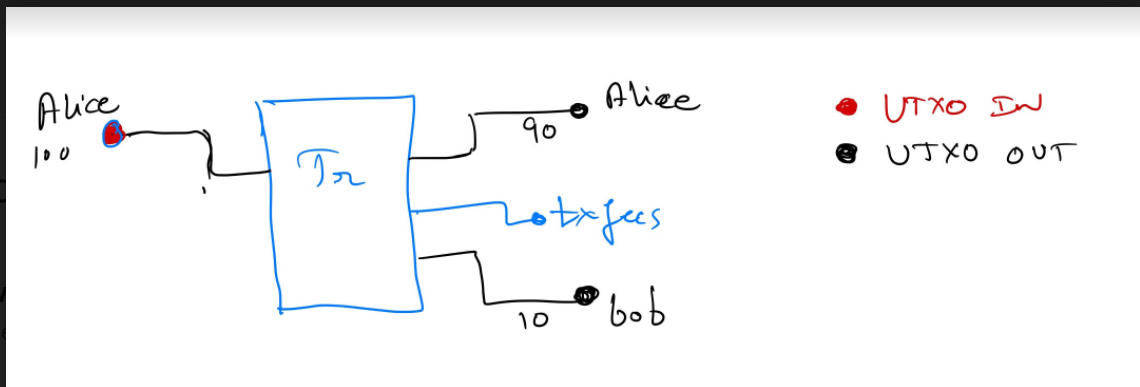 Alice
100
Tx
Alice
90
txfees
bob
10
UTXO IN
UTXO OUT